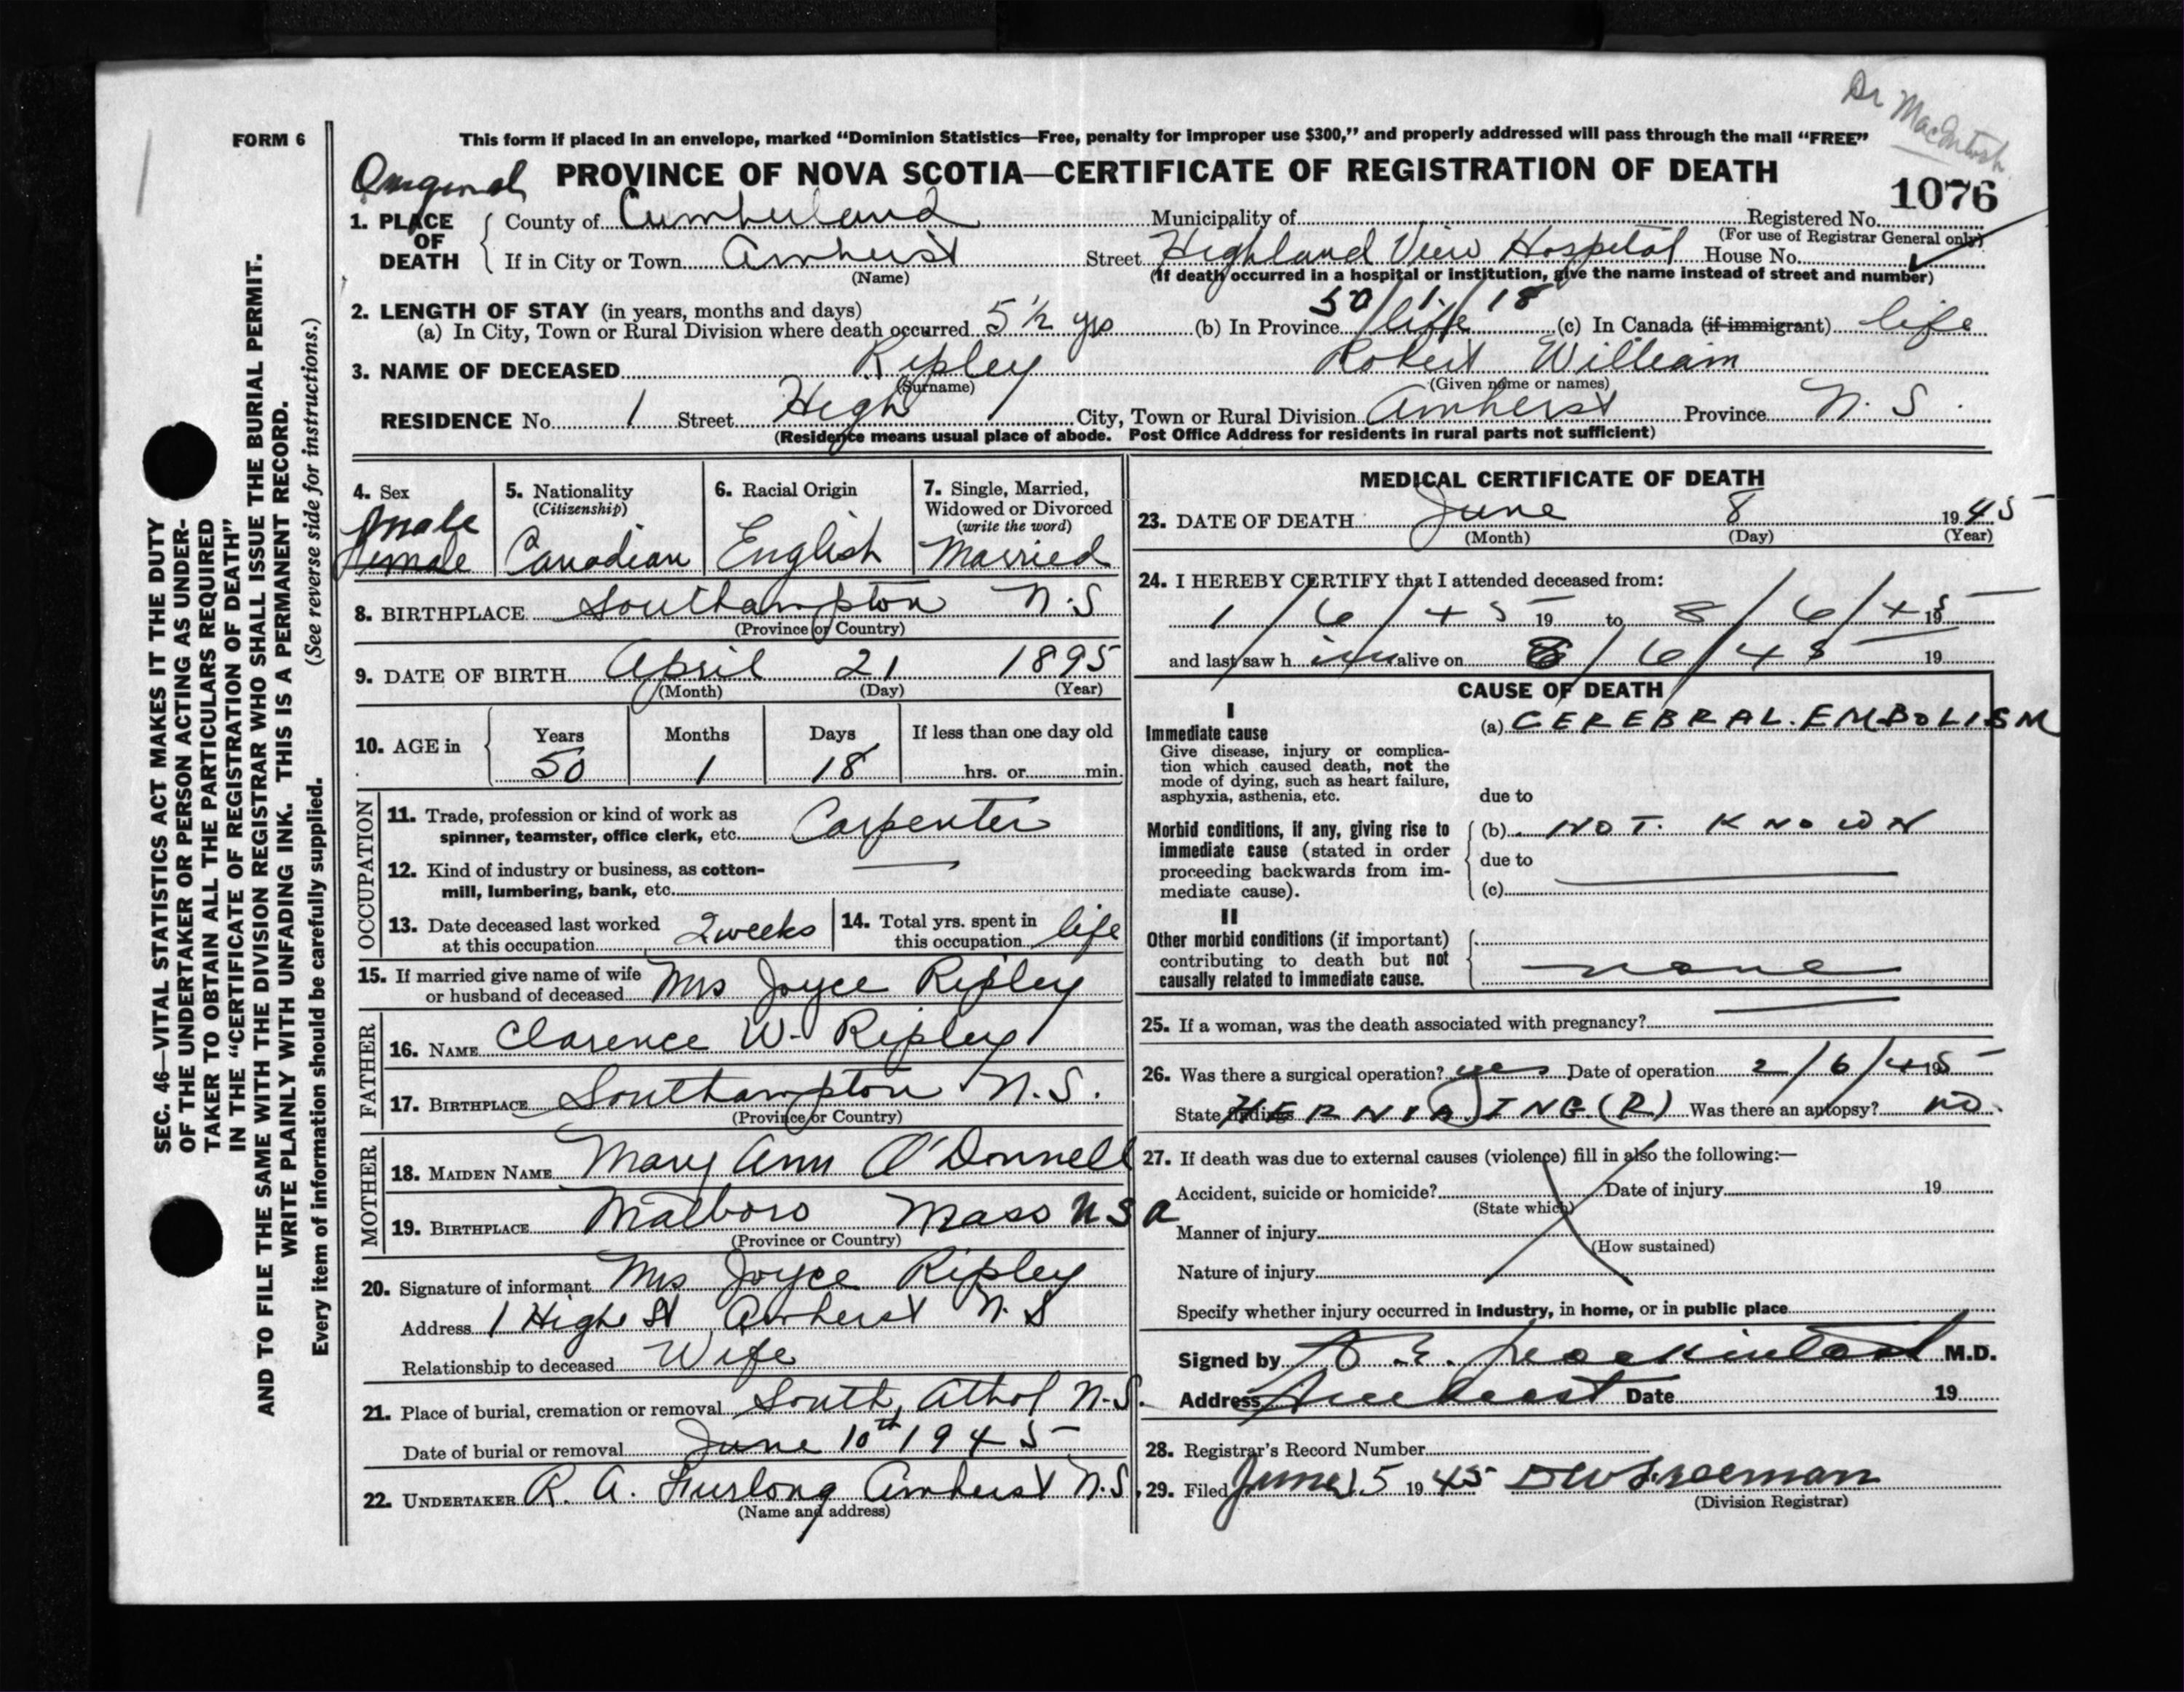 Dr MacIntosh
FORM 6
This form if placed in an envelope, marked “Dominion Statistics—Free, penalty for improper use $300,” and properly addressed will pass through the mail “FREE”
PROVINCE OF NOVA SCOTIA—CERTIFICATE OF REGISTRATION OF DEATH
1076
1. PLACE OF DEATH { County of Cumberland Municipality of Registered No.
(For use of Registrar General only)
If in City or Town Amherst Street Highland View Hospital House No.
(Name) (If death occurred in a hospital or institution, give the name instead of street and number)
50 / 1 / 18
2. LENGTH OF STAY (in years, months and days)
(a) In City, Town or Rural Division where death occurred 5 ½ yrs (b) In Province life (c) In Canada (if immigrant) life
3. NAME OF DECEASED Ripley Robert William
(Surname) (Given name or names)
RESIDENCE No. 1 Street High City, Town or Rural Division Amherst Province N. S.
(Residence means usual place of abode. Post Office Address for residents in rural parts not sufficient)
4. Sex male female
5. Nationality (Citizenship) Canadian
6. Racial Origin English
7. Single, Married, Widowed or Divorced (write the word) Married
8. BIRTHPLACE Southampton N.S
(Province or Country)
9. DATE OF BIRTH April 21 1895
(Month) (Day) (Year)
10. AGE in { Years Months Days If less than one day old
50 1 18 hrs. or min.
OCCUPATION
11. Trade, profession or kind of work as
spinner, teamster, office clerk, etc. Carpenter
12. Kind of industry or business, as cotton-
mill, lumbering, bank, etc. —
13. Date deceased last worked
at this occupation 2 weeks
14. Total yrs. spent in
this occupation life
15. If married give name of wife
or husband of deceased Mrs Joyce Ripley
FATHER
16. NAME Clarence W. Ripley
17. BIRTHPLACE Southampton N.S.
(Province or Country)
MOTHER
18. MAIDEN NAME Mary Ann O'Donnell
19. BIRTHPLACE Malboro Mass U S A
(Province or Country)
20. Signature of informant Mrs Joyce Ripley
Address 1 High St Amherst N.S
Relationship to deceased Wife
21. Place of burial, cremation or removal South, Athol N.S.
Date of burial or removal June 10th 1945
22. UNDERTAKER R. A. Furlong Amherst N.S.
(Name and address)
MEDICAL CERTIFICATE OF DEATH
23. DATE OF DEATH June 8 1945
(Month) (Day) (Year)
24. I HEREBY CERTIFY that I attended deceased from:
1 / 6 / 45 19 to 8 / 6 / 45 19
and last saw h im alive on 8 / 6 / 45 19
CAUSE OF DEATH
I
Immediate cause
Give disease, injury or complica-
tion which caused death, not the
mode of dying, such as heart failure,
asphyxia, asthenia, etc.
(a) CEREBRAL EMBOLISM
due to
Morbid conditions, if any, giving rise to
immediate cause (stated in order
proceeding backwards from im-
mediate cause).
(b) NOT KNOWN
due to
(c)
II
Other morbid conditions (if important)
contributing to death but not
causally related to immediate cause.
none
25. If a woman, was the death associated with pregnancy? —
26. Was there a surgical operation? yes Date of operation 2 / 6 / 45 19
State findings HERNIA ING (R) Was there an autopsy? no.
27. If death was due to external causes (violence) fill in also the following:—
Accident, suicide or homicide? Date of injury 19
(State which)
Manner of injury
(How sustained)
Nature of injury
Specify whether injury occurred in industry, in home, or in public place
Signed by E. Mackintosh M.D.
Address Amherst Date 19
28. Registrar's Record Number
29. Filed June 15 1945 D W Freeman
(Division Registrar)
SEC. 46—VITAL STATISTICS ACT MAKES IT THE DUTY
OF THE UNDERTAKER OR PERSON ACTING AS UNDER-
TAKER TO OBTAIN ALL THE PARTICULARS REQUIRED
IN THE “CERTIFICATE OF REGISTRATION OF DEATH”
AND TO FILE THE SAME WITH THE DIVISION REGISTRAR WHO SHALL ISSUE THE BURIAL PERMIT.
WRITE PLAINLY WITH UNFADING INK. THIS IS A PERMANENT RECORD.
Every item of information should be carefully supplied. (See reverse side for instructions.)